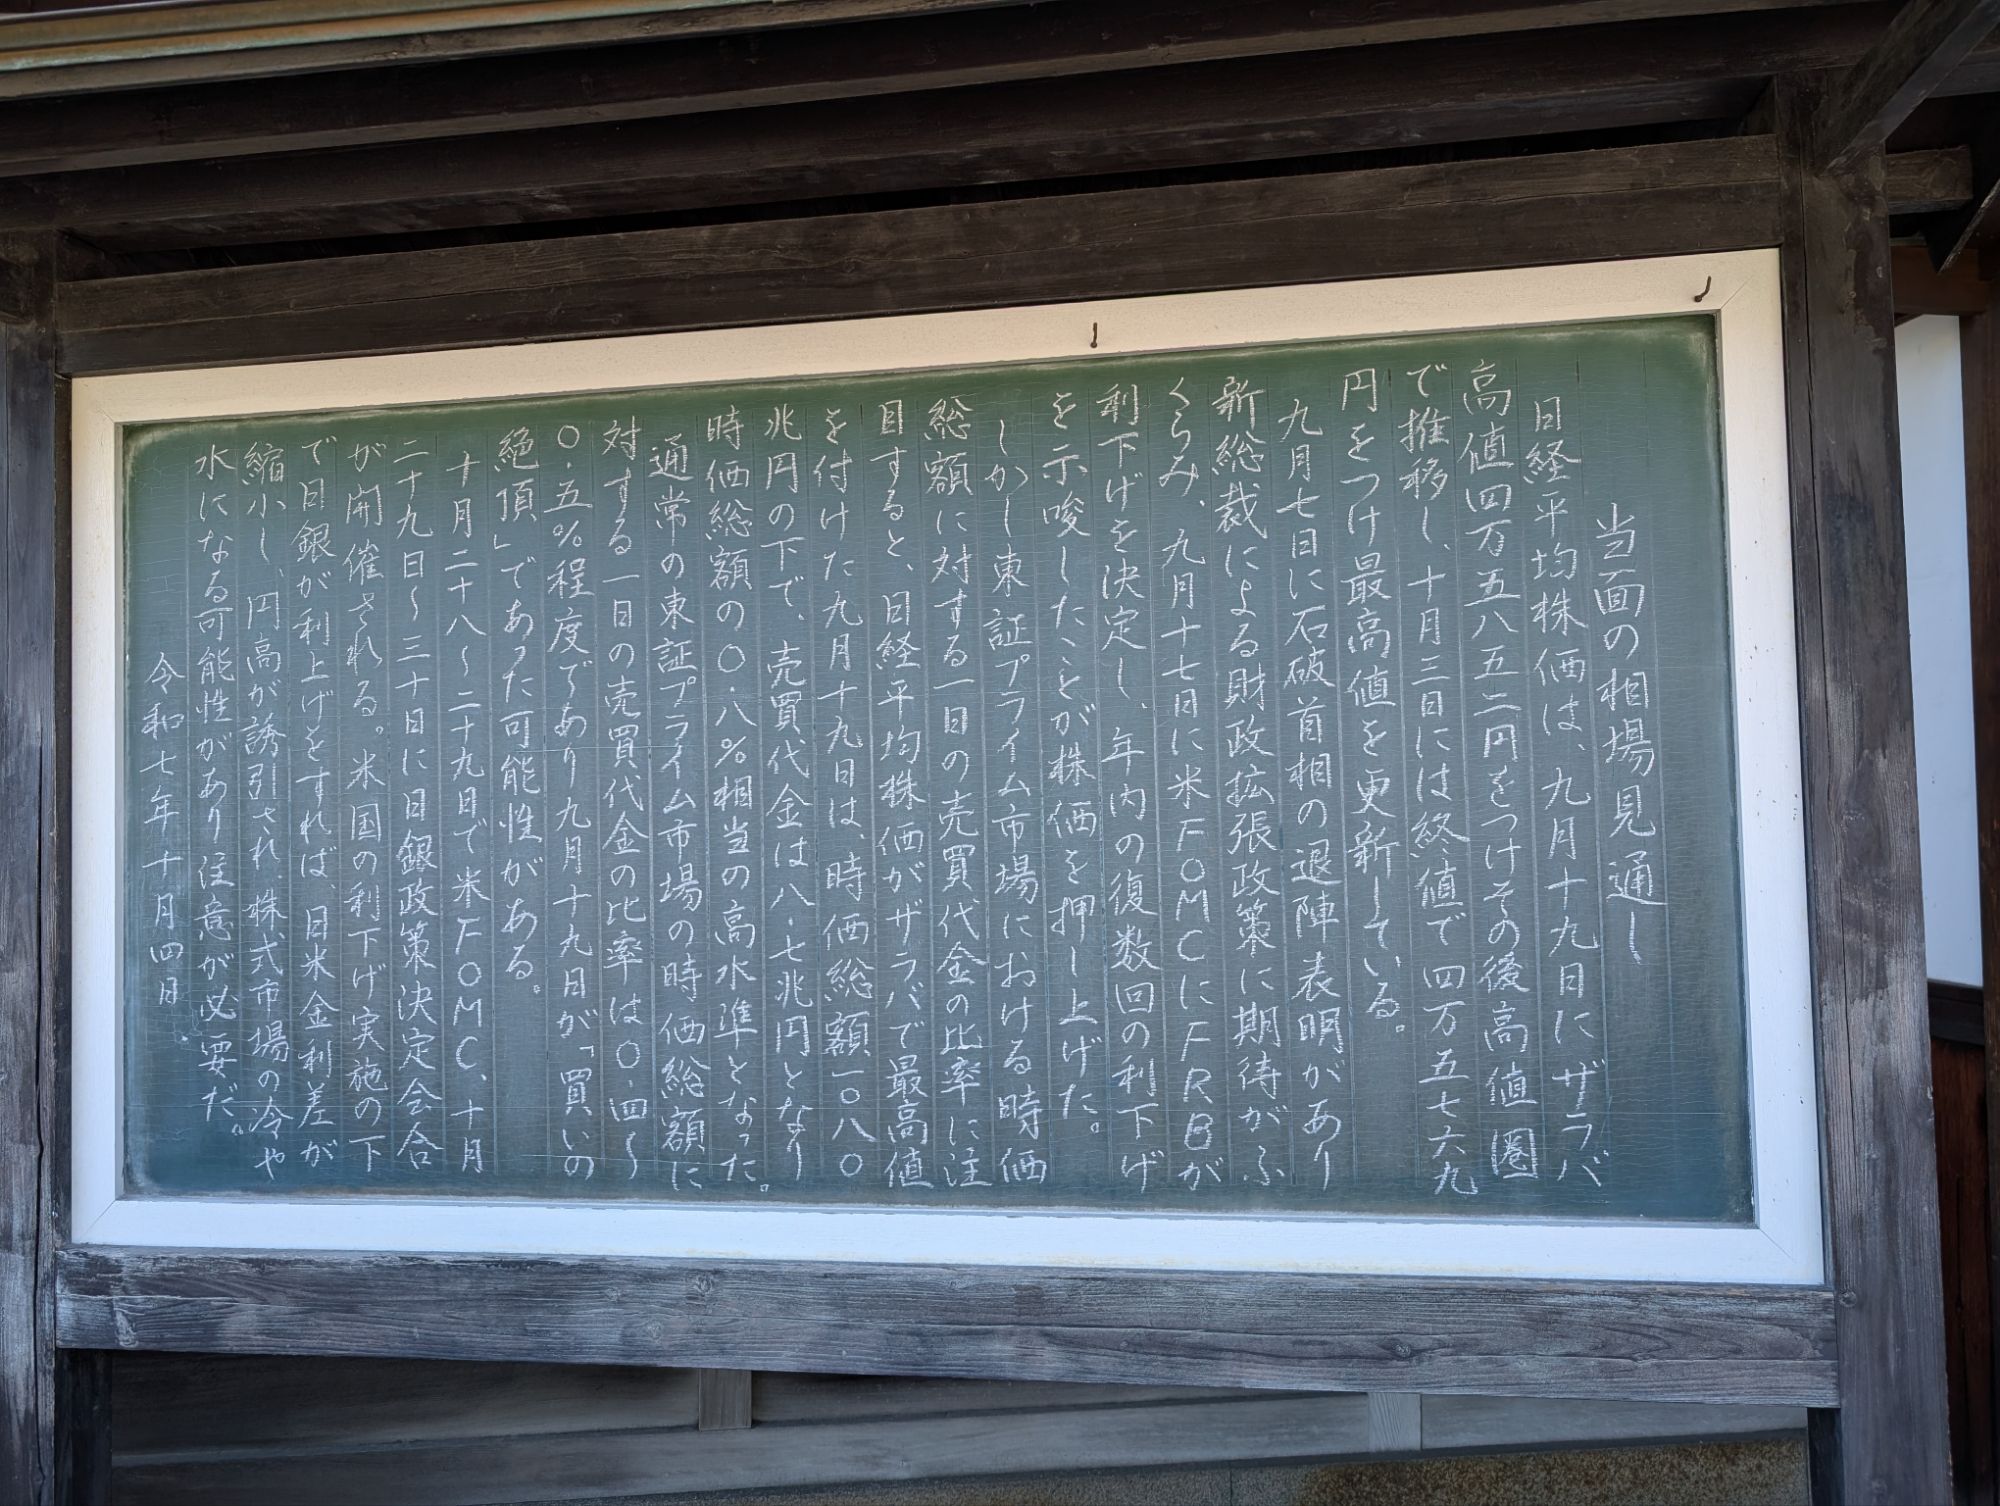 当面の相場見通し
日経平均株価は、九月十九日にザラバ
高値四万五八五二円をつけその後高値圏
で推移し、十月三日には終値で四万五七六九
円をつけ最高値を更新している。
九月七日に石破首相の退陣表明があり
新総裁による財政拡張政策に期待がふ
くらみ、九月十七日に米FOMCにFRBが
利下げを決定し、年内の復数回の利下げ
を示唆したことが株価を押し上げた。
しかし東証プライム市場における時価
総額に対する一日の売買代金の比率に注
目すると、日経平均株価がザラバで最高値
を付けた九月十九日は、時価総額一〇八〇
兆円の下で、売買代金は八・七兆円となり
時価総額の〇・八%相当の高水準となった。
通常の東証プライム市場の時価総額に
対する一日の売買代金の比率は〇・四〜
〇・五%程度であり九月十九日が「買いの
絶頂」であった可能性がある。
十月二十八〜二十九日で米FOMC、十月
二十九日〜三十日に日銀政策決定会合
が開催される。米国の利下げ実施の下
で日銀が利上げをすれば、日米金利差が
縮小し、円高が誘引され、株式市場の冷や
水になる可能性があり注意が必要だ。
令和七年十月四日